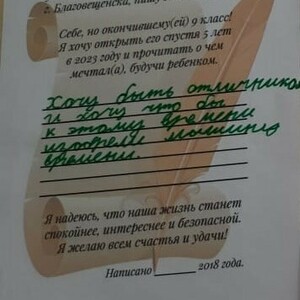 г. Благовещенска, пишу
Себе, но окончившему(ей) 9 класс!
Я хочу открыть его спустя 5 лет
в 2023 году и прочитать о чем
мечтал(а), будучи ребенком.
Хочу быть отличником
и хочу что бы
к этому времени
изобрели машина
времени.
Я надеюсь, что наша жизнь станет
спокойнее, интереснее и безопасной.
Я желаю всем счастья и удачи!
Написано ______ 2018 года.